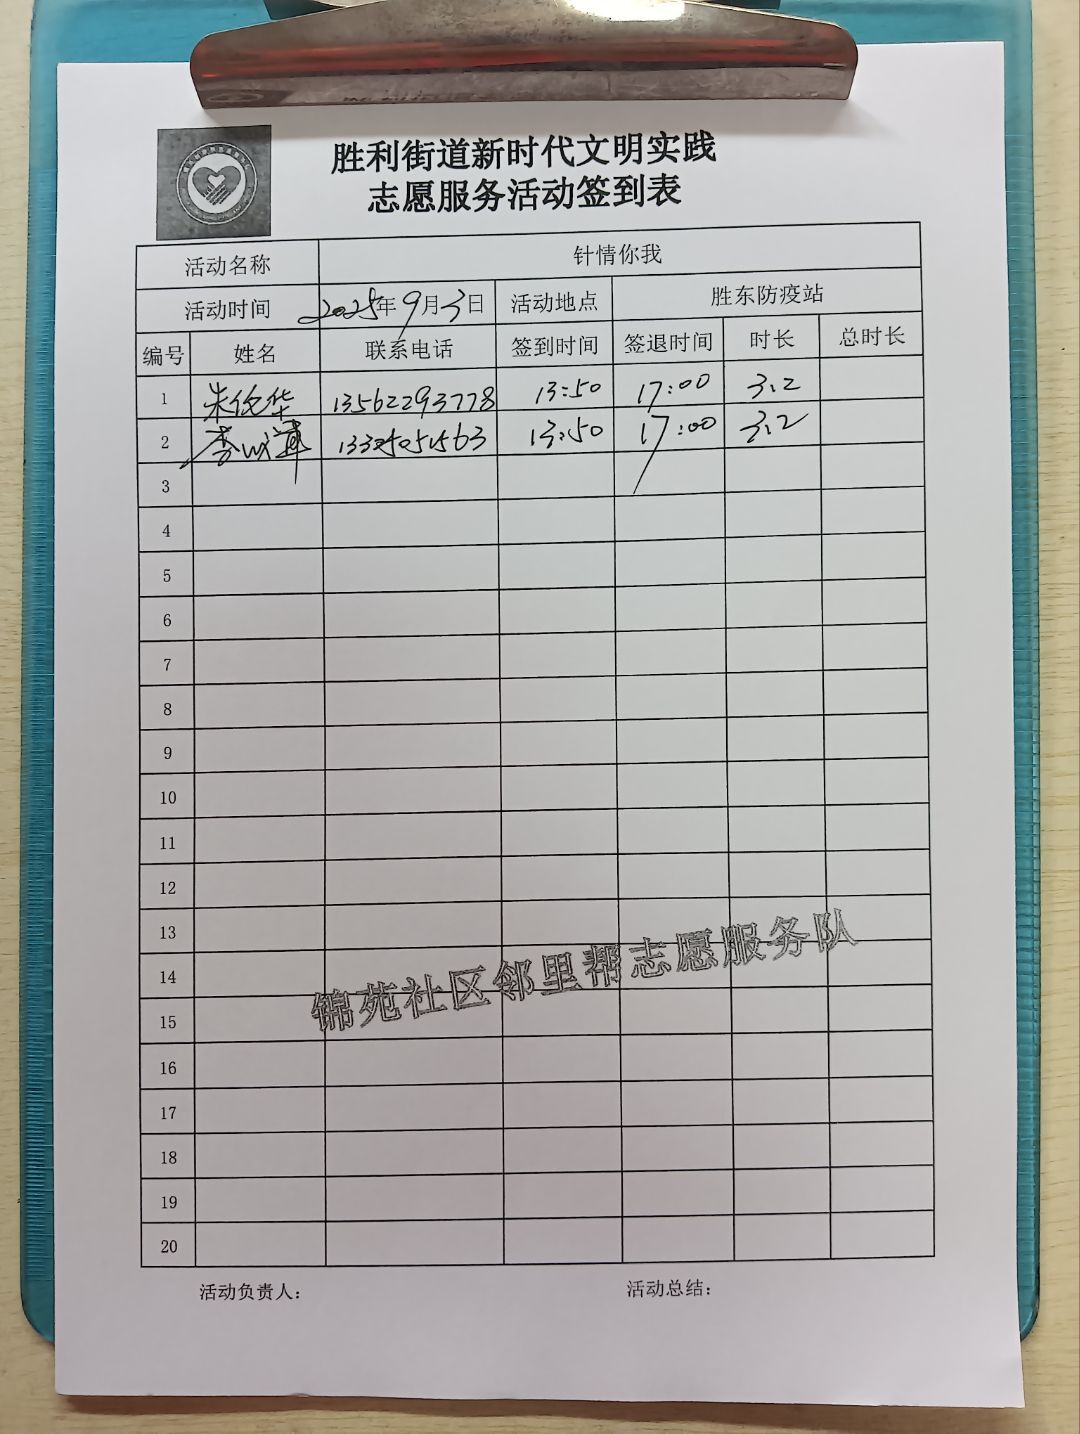 胜利街道新时代文明实践
志愿服务活动签到表
活动名称 针情你我
活动时间 2025年9月3日 活动地点 胜东防疫站
编号 姓名 联系电话 签到时间 签退时间 时长 总时长
1 朱伦华 13562293778 13:50 17:00 3.2
2 李 13:50 17:00 3.2
3
4
5
6
7
8
9
10
11
12
13
14
15
16
17
18
19
20
锦苑社区邻里帮志愿服务队
活动负责人： 活动总结：